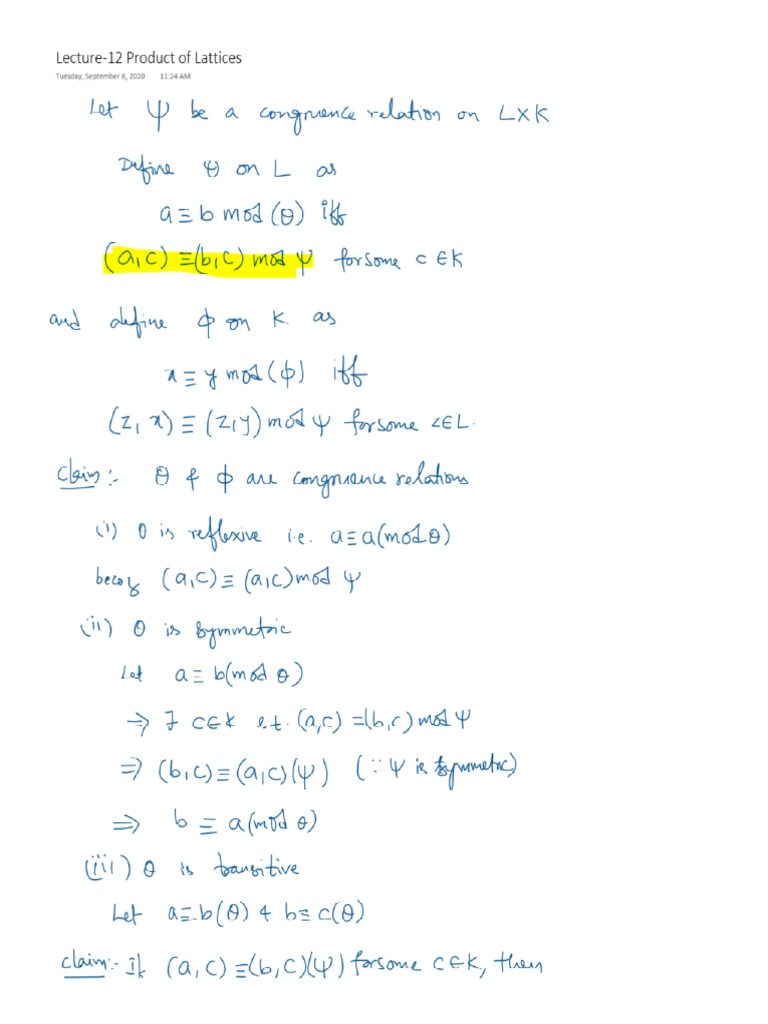 Lecture-12 Product of Lattices
Tuesday, September 8, 2020 11:24 AM
Let ψ be a congruence relation on L×K
Define θ on L as
a ≡ b mod (θ) iff
(a,c) ≡ (b,c) mod ψ for some c ∈ K
and define ϕ on K as
x ≡ y mod (ϕ) iff
(z, x) ≡ (z,y) mod ψ for some z ∈ L.
Claim:- θ & ϕ are congruence relations
(i) θ is reflexive i.e. a ≡ a (mod θ)
becoz (a,c) ≡ (a,c) mod ψ
(ii) θ is symmetric
Let a ≡ b (mod θ)
⇒ ∃ c ∈ K s.t. (a,c) ≡ (b,c) mod ψ
⇒ (b,c) ≡ (a,c) (ψ) (∵ ψ is symmetric)
⇒ b ≡ a (mod θ)
(iii) θ is transitive
Let a ≡ b (θ) & b ≡ c (θ)
claim:- If (a,c) ≡ (b,c) (ψ) for some c ∈ K, then